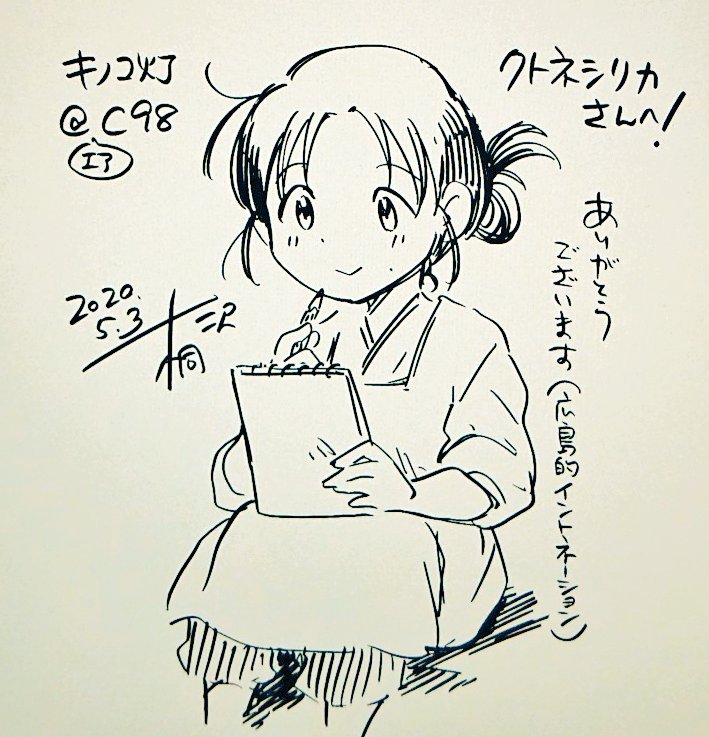 キノコ灯
@C98
エア
クトネシリカ
さんへ!
ありがとう
ございます(広島的イントネーション)
2020.
5.3
桐沢